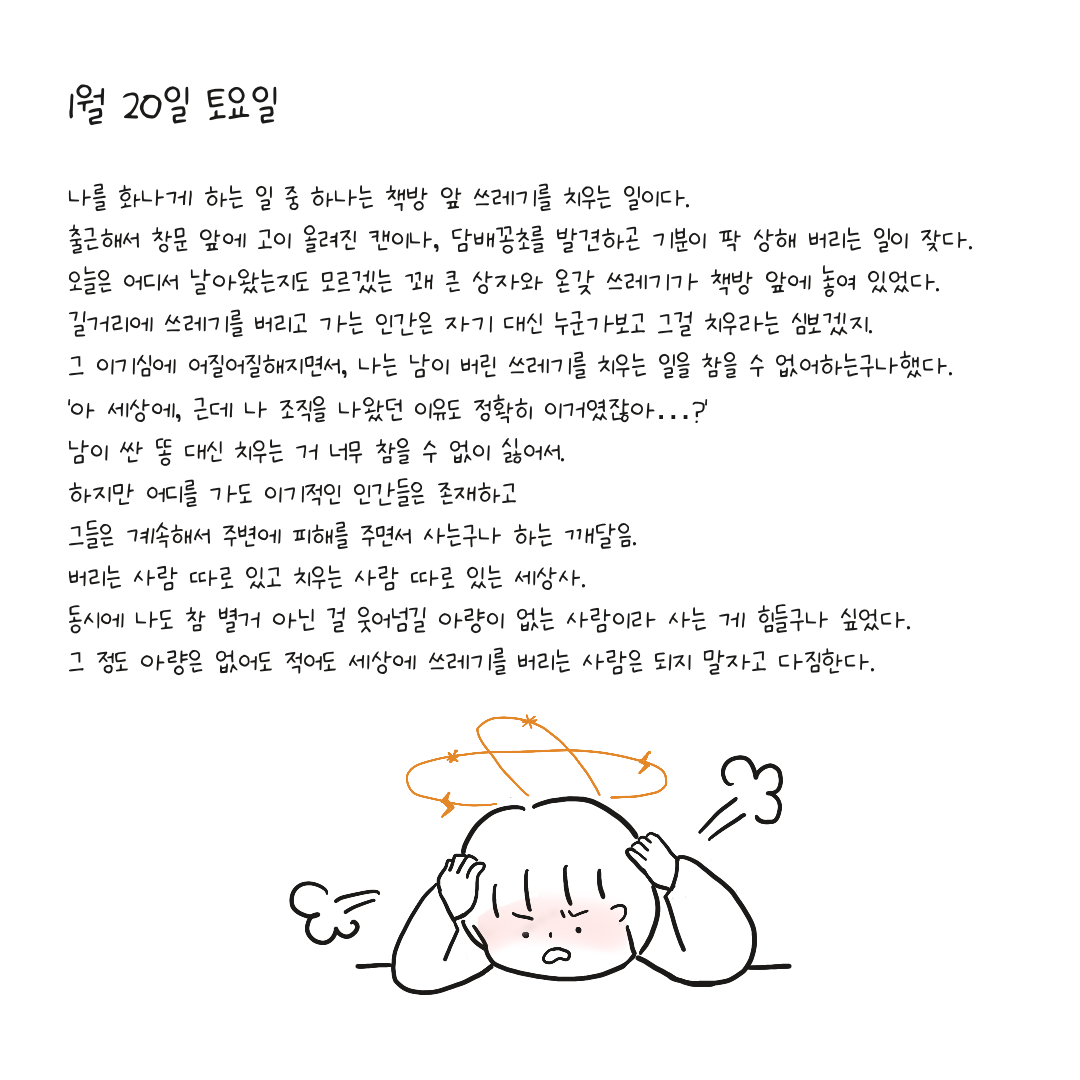 1월 20일 토요일
나를 화나게 하는 일 중 하나는 책방 앞 쓰레기를 치우는 일이다.
출근해서 창문 앞에 고이 올려진 캔이나, 담배꽁초를 발견하곤 기분이 팍 상해 버리는 일이 잦다.
오늘은 어디서 날아왔는지도 모르겠는 꽤 큰 상자와 온갖 쓰레기가 책방 앞에 놓여 있었다.
길거리에 쓰레기를 버리고 가는 인간은 자기 대신 누군가보고 그걸 치우라는 심보겠지.
그 이기심에 어질어질해지면서, 나는 남이 버린 쓰레기를 치우는 일을 참을 수 없어하는구나했다.
'아 세상에, 근데 나 조직을 나왔던 이유도 정확히 이거였잖아...?'
남이 싼 똥 대신 치우는 거 너무 참을 수 없이 싫어서.
하지만 어디를 가도 이기적인 인간들은 존재하고
그들은 계속해서 주변에 피해를 주면서 사는구나 하는 깨달음.
버리는 사람 따로 있고 치우는 사람 따로 있는 세상사.
동시에 나도 참 별거 아닌 걸 웃어넘길 아량이 없는 사람이라 사는 게 힘들구나 싶었다.
그 정도 아량은 없어도 적어도 세상에 쓰레기를 버리는 사람은 되지 말자고 다짐한다.